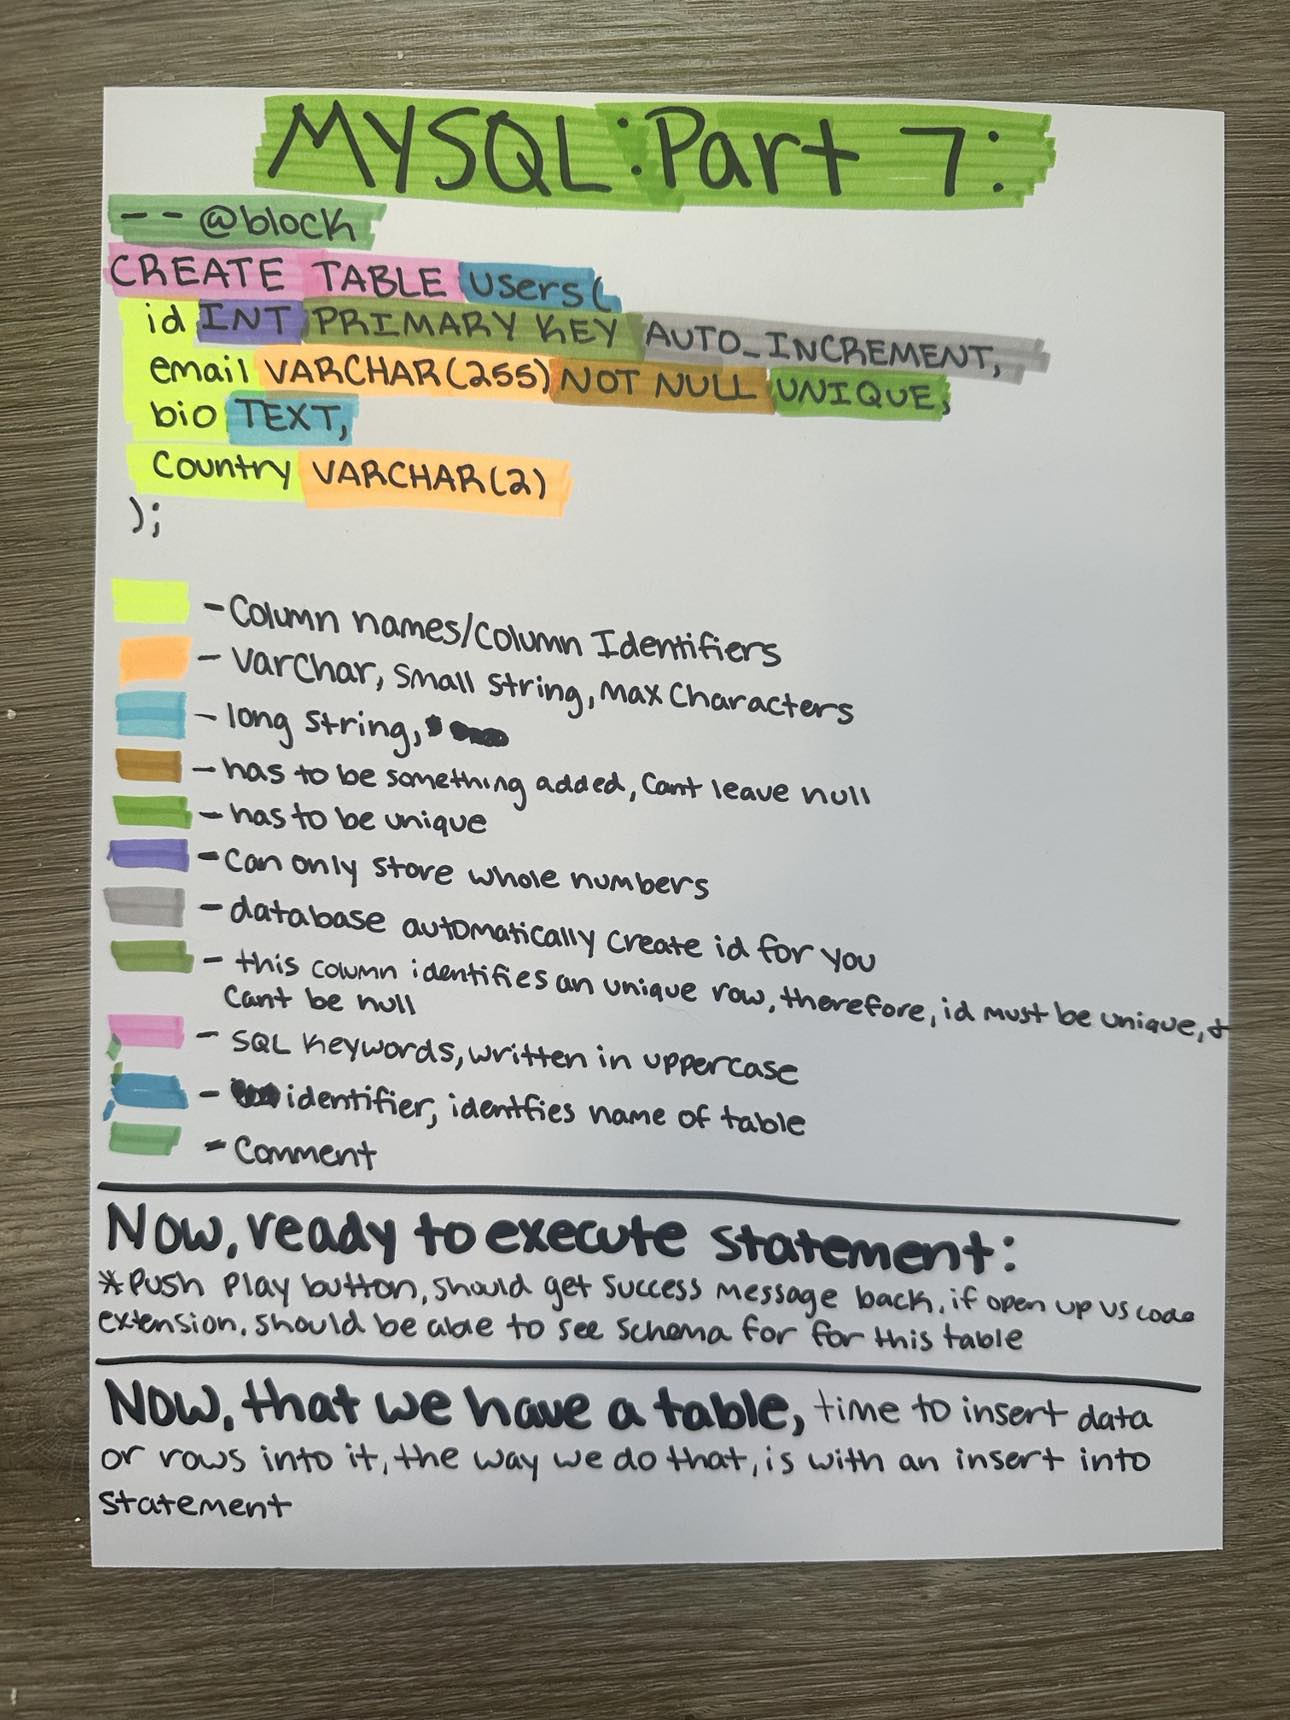 MYSQL:Part 7:
-- @block
CREATE TABLE users(
id INT PRIMARY KEY AUTO_INCREMENT,
email VARCHAR(255) NOT NULL UNIQUE,
bio TEXT,
Country VARCHAR(2)
);
- Column names/Column Identifiers
- Varchar, small string, max characters
- long string,
- has to be something added, Cant leave null
- has to be unique
- Can only store whole numbers
- database automatically create id for you
- this column identifies an unique row, therefore, id must be unique, &
Cant be null
- SQL Keywords, written in uppercase
- identifier, identfies name of table
- Comment
Now, ready to execute statement:
*Push Play button, should get success message back, if open up vs code
extension, should be able to see schema for for this table
Now, that we have a table, time to insert data
or rows into it, the way we do that, is with an insert into
statement